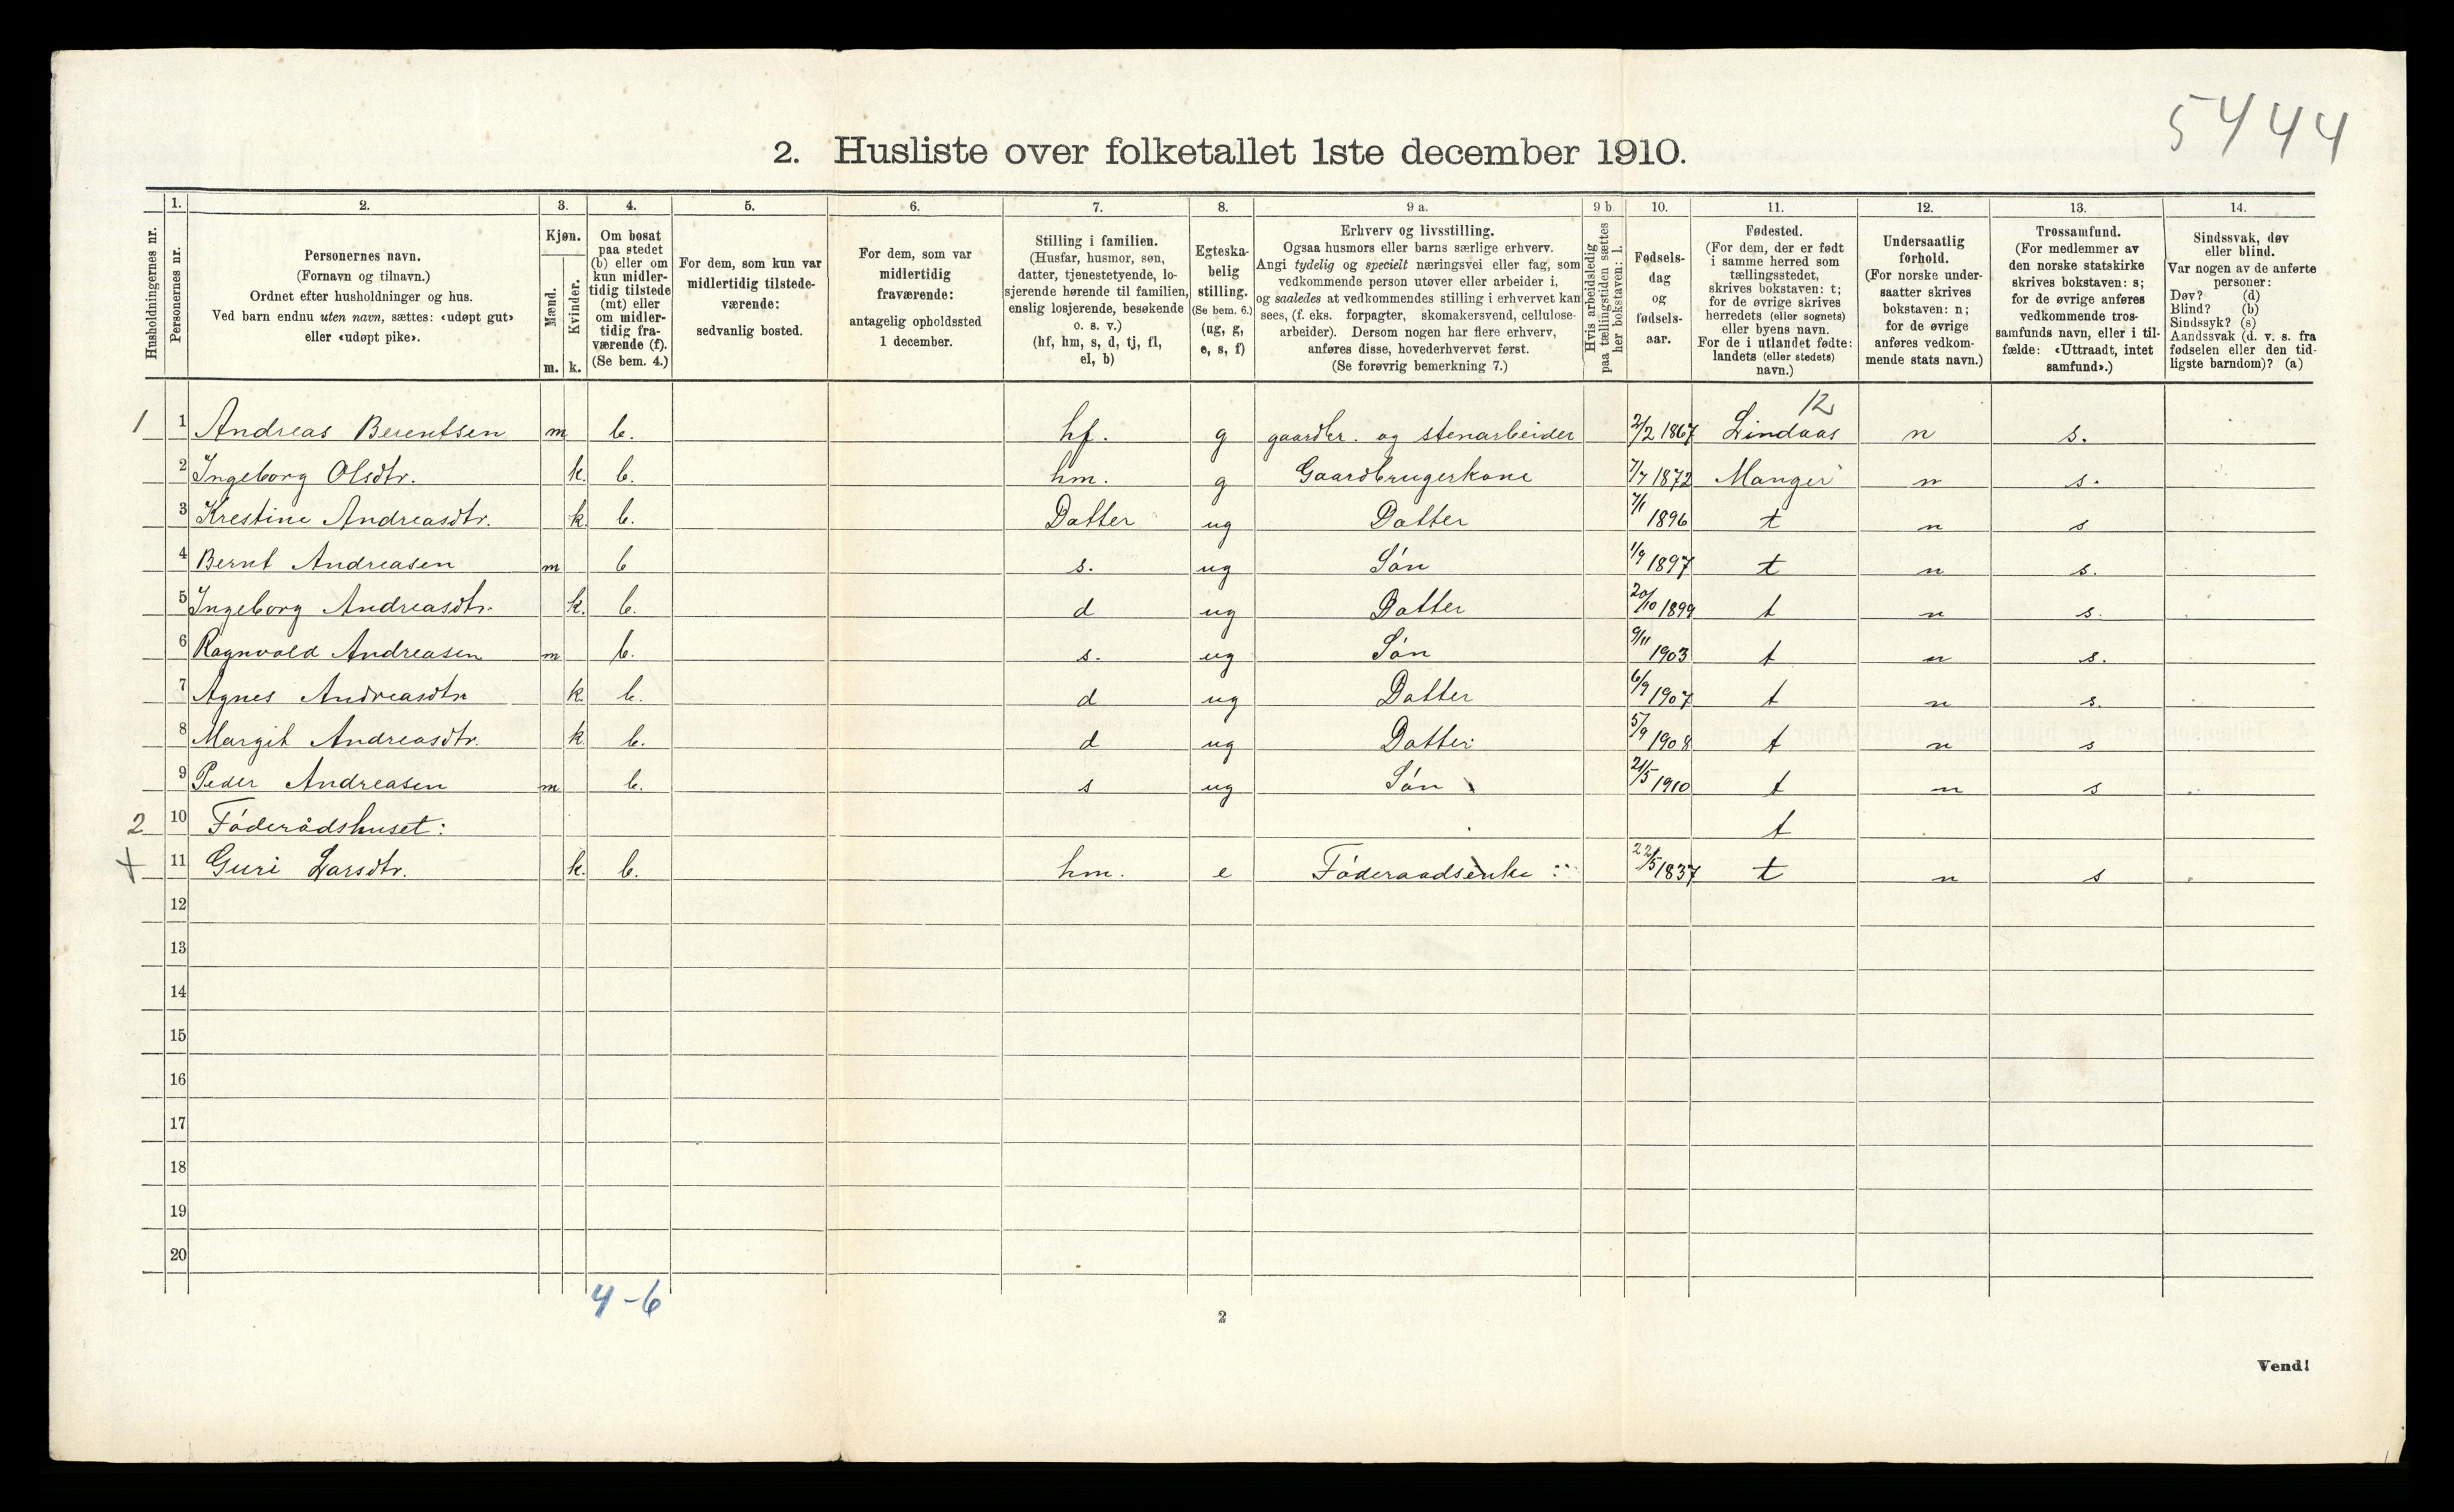 5444
2. Husliste over folketallet 1ste december 1910.
Husholdningernes nr.
1. Personernes nr.
2. Personernes navn.
(Fornavn og tilnavn.)
Ordnet efter husholdninger og hus.
Ved barn endnu uten navn, sættes: «udøpt gut»
eller «udøpt pike».
3. Kjøn.
Mænd. Kvinder.
m. k.
4. Om bosat
paa stedet
(b) eller om
kun midler-
tidig tilstede
(mt) eller
om midler-
tidig fra-
værende (f).
(Se bem. 4.)
5. For dem, som kun var
midlertidig tilstede-
værende:
sedvanlig bosted.
6. For dem, som var
midlertidig
fraværende:
antagelig opholdssted
1 december.
7. Stilling i familien.
(Husfar, husmor, søn,
datter, tjenestetyende, lo-
sjerende hørende til familien,
enslig losjerende, besøkende
o. s. v.)
(hf, hm, s, d, tj, fl,
el, b)
8. Egteska-
belig
stilling.
(Se bem. 6.)
(ug, g,
e, s, f)
9 a. Erhverv og livsstilling.
Ogsaa husmors eller barns særlige erhverv.
Angi tydelig og specielt næringsvei eller fag, som
vedkommende person utøver eller arbeider i,
og saaledes at vedkommendes stilling i erhvervet kan
sees, (f. eks. forpagter, skomakersvend, cellulose-
arbeider). Dersom nogen har flere erhverv,
anføres disse, hovederhvervet først.
(Se forøvrig bemerkning 7.)
9 b Hvis arbeidsledig
paa tællingstiden sættes
her bokstaven: l.
10. Fødsels-
dag
og
fødsels-
aar.
11. Fødested.
(For dem, der er født
i samme herred som
tællingsstedet,
skrives bokstaven: t;
for de øvrige skrives
herredets (eller sognets)
eller byens navn.
For de i utlandet fødte:
landets (eller stedets)
navn.)
12. Undersaatlig
forhold.
(For norske under-
saatter skrives
bokstaven: n;
for de øvrige
anføres vedkom-
mende stats navn.)
13. Trossamfund.
(For medlemmer av
den norske statskirke
skrives bokstaven: s;
for de øvrige anføres
vedkommende tros-
samfunds navn, eller i til-
fælde: «Uttraadt, intet
samfund».)
14. Sindssvak, døv
eller blind.
Var nogen av de anførte
personer:
Døv? (d)
Blind? (b)
Sindssyk? (s)
Aandssvak (d. v. s. fra
fødselen eller den tid-
ligste barndom)? (a)
12
1 1 Andreas Berentsen m b. hf. g gaardbr. og stenarbeider 2/2 1867 Lindaas n s.
2 Ingeborg Olsdtr. k. b. hm. g Gaardbrugerkone 7/7 1872 Manger n s.
3 Krestine Andreasdtr. k. b. Datter ug Datter 7/1 1896 t n s
4 Bernt Andreasen m b s. ug Søn 1/9 1897 t n s.
5 Ingeborg Andreasdtr. k. b. d ug Datter 20/10 1899 t n s.
6 Ragnvald Andreasen m b. s. ug Søn 9/11 1903 t n s.
7 Agnes Andreasdtr k. b. d ug Datter 6/9 1907 t n s.
8 Margit Andreasdtr. k. b. d ug Datter 5/9 1908 t n s
9 Peder Andreasen m b. s ug Søn 21/5 1910 t n s
2 10 Føderådshuset: t
+ 11 Guri Larsdtr. k. b. hm. e Føderaadsenke 22/5 1837 t n s
12
13
14
15
16
17
18
19
20
4-6
2
Vend!